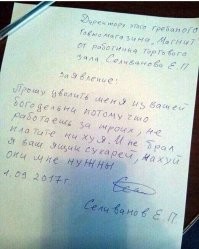 Директору этого гребаного
Говномагазина, Магнит
от работника торгового
зала Селиванова Е.П
Заявление:
Прошу уволить меня из вашей
богодельни потому что
работаешь за троих, не
платите ни хуя. И не брал
я ваш ящик сухарей, нахуй
они мне нужны
1.09.2017г
Селиванов Е. П.